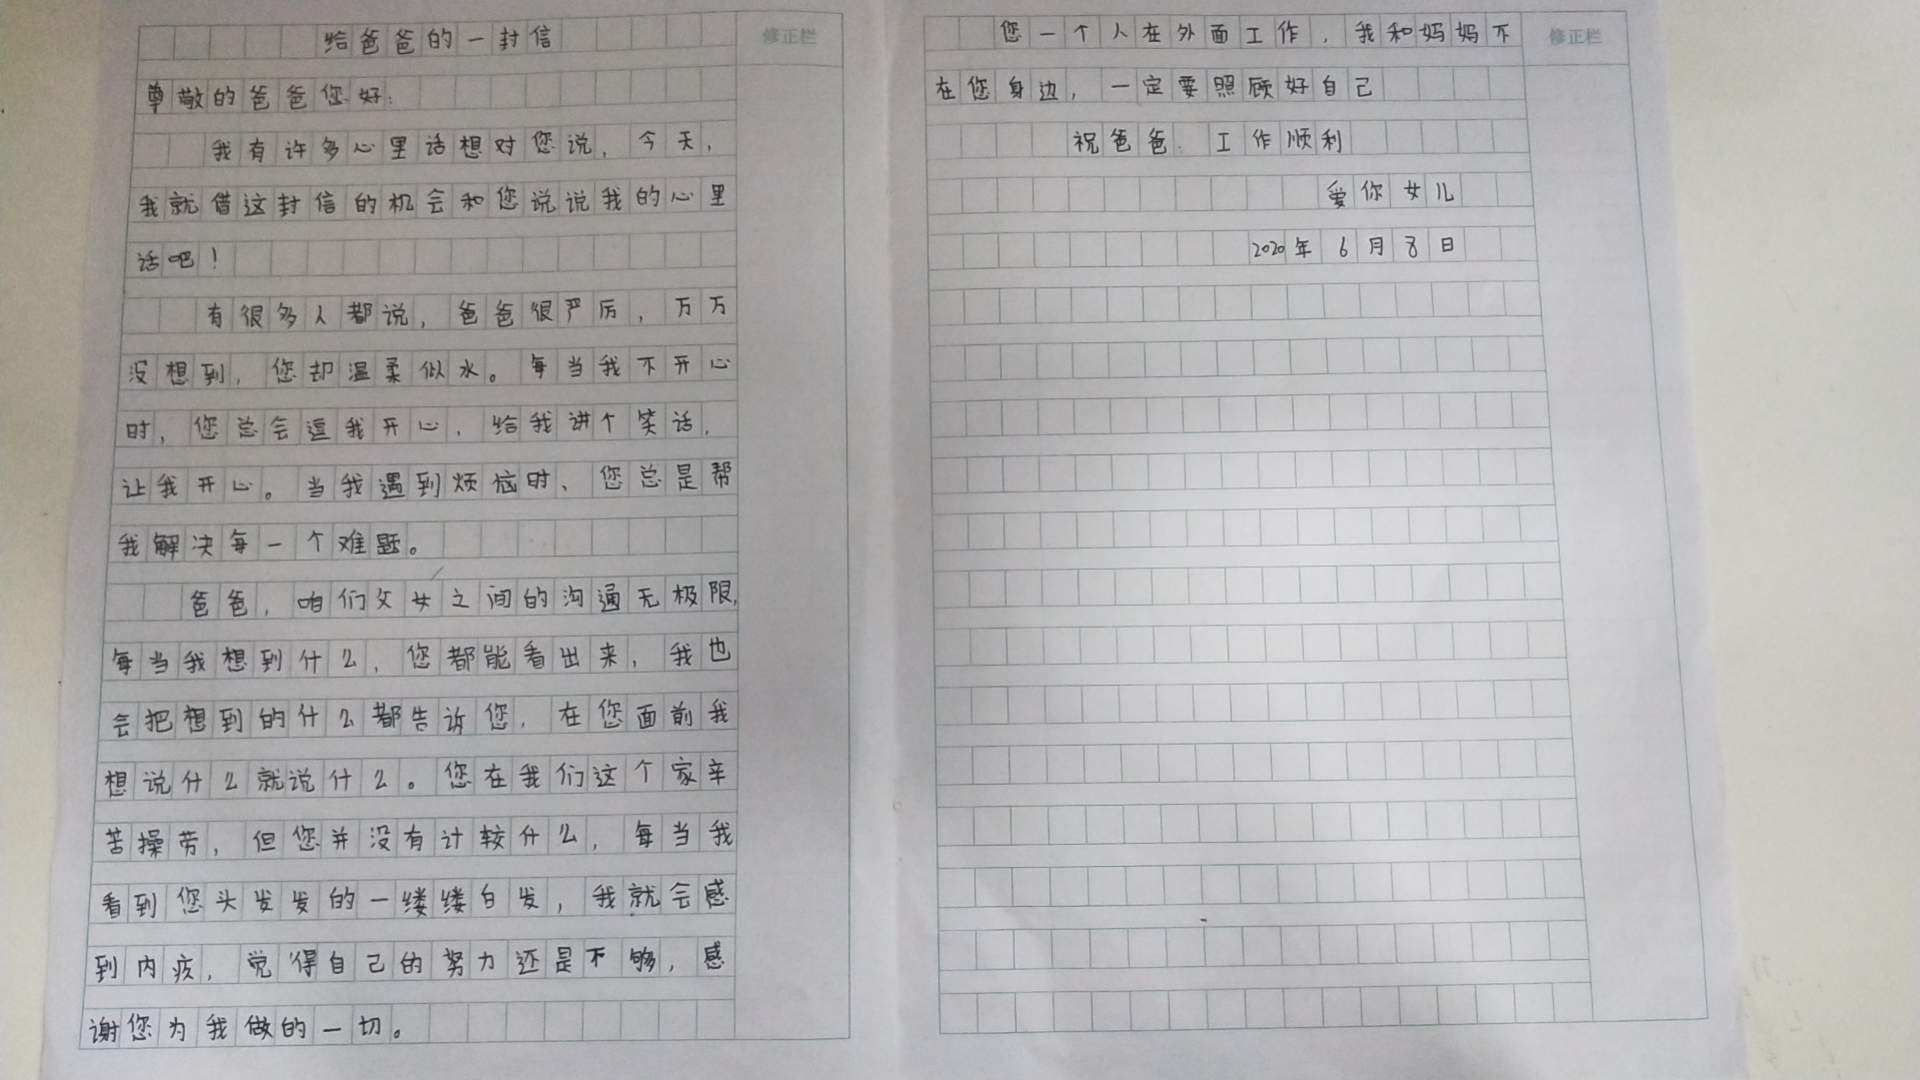 给爸爸的一封信
修正栏
尊敬的爸爸您好:
我有许多心里话想对您说,今天,
我就借这封信的机会和您说说我的心里
话吧!
有很多人都说,爸爸很严厉,万万
没想到,您却温柔似水。每当我不开心
时,您总会逗我开心,给我讲个笑话,
让我开心。当我遇到烦恼时、您总是帮
我解决每一个难题。
爸爸,咱们父女之间的沟通无极限,
每当我想到什么,您都能看出来,我也
会把想到的什么都告诉您,在您面前我
想说什么就说什么。您在我们这个家辛
苦操劳,但您并没有计较什么,每当我
看到您头发发的一缕缕白发,我就会感
到内疚,觉得自己的努力还是不够,感
谢您为我做的一切。
您一个人在外面工作,我和妈妈不
修正栏
在您身边,一定要照顾好自己
祝爸爸:工作顺利
爱你女儿
2020年6月8日